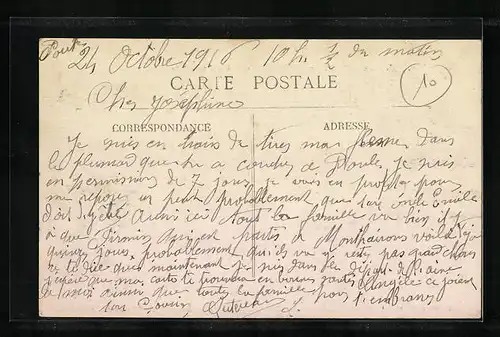 24 Octobre 1916 10 h. ½ du matin
10
CARTE POSTALE
Cher Joséphine
CORRESPONDANCE ADRESSE
Je suis en train de tirer ma flemme dans
le plumard que tu a couchez de Je suis
en permission de 7 jours je vais en profiter pour
me reposer un peu probablement que ton oncle Emile
doit être aussi ici tout la famille va bien il y
a que qui est partis à Monthairons voilà déja
quinze jours, probablement qu'ils va y restez pas grand chose
a te dire que maintenant je suis dans le départ. de l'Aisne
j'espère que ma carte te trouvera en bonne santée Angèle ce joint
à moi ainsi que toute la famille pour t'embrasser
ton Cousin